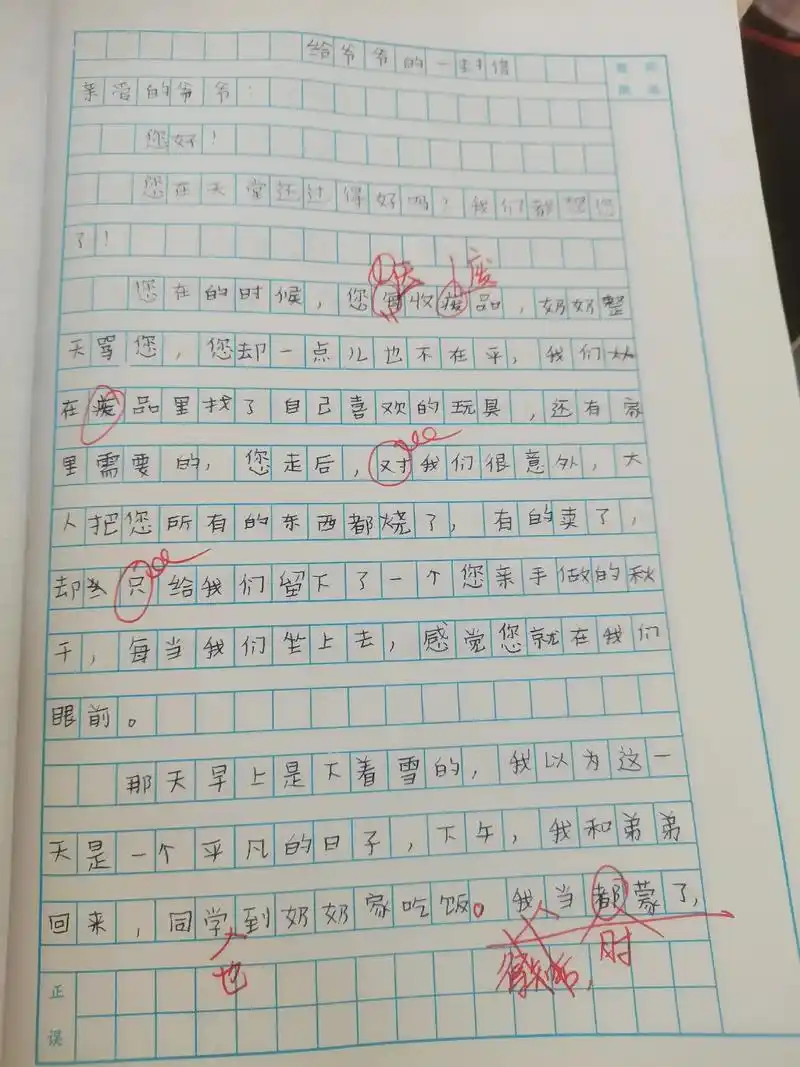 给爷爷的一封信
亲爱的爷爷：
您好！
您在天堂还过得好吗？我们都想您
了！
天 废
您在的时候，您每收废品，奶奶整
天骂您，您却一点儿也不在乎，我们从
在废品里找了自己喜欢的玩具，还有家
里需要的，您走后，对我们很意外，大
人把您所有的东西都烧了，有的卖了，
却只给我们留下了一个您亲手做的秋
千，每当我们坐上去，感觉您就在我们
眼前。
那天早上是下着雪的，我以为这一
天是一个平凡的日子，下午，我和弟弟
回来，同学到奶奶家吃饭。我当都蒙了，
也 时
正
误